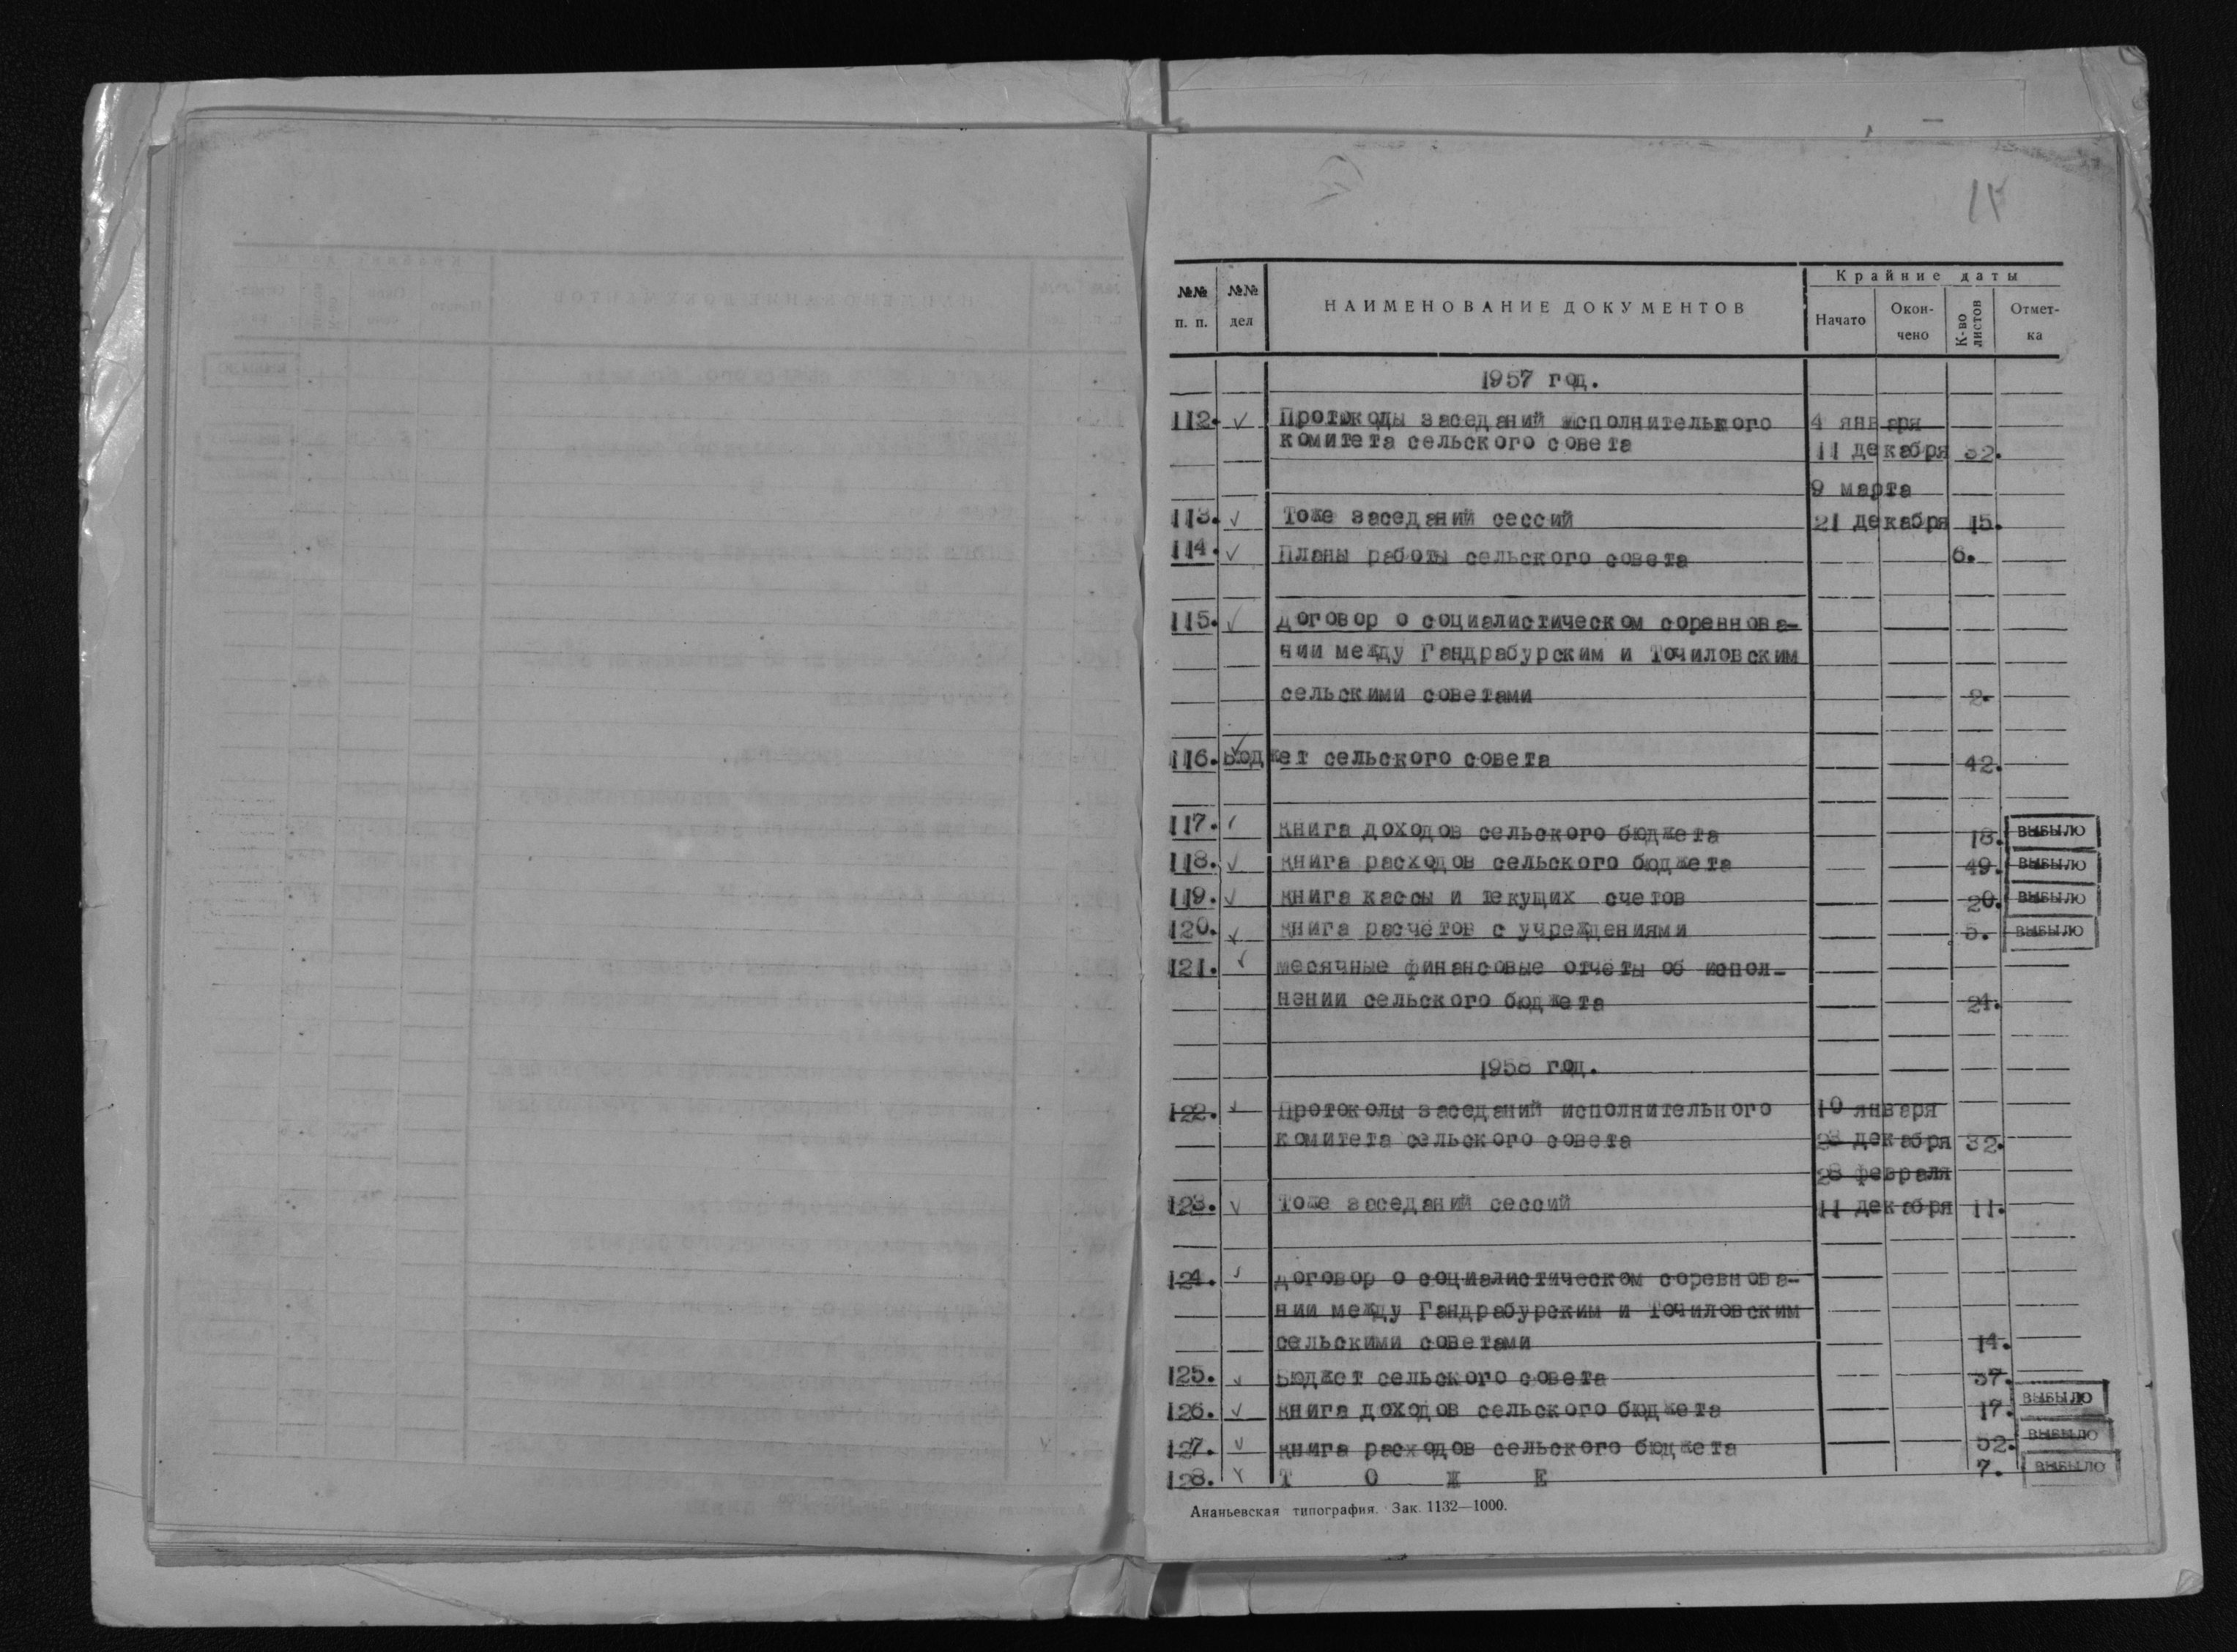 14
№№ п. п. №№ дел НАИМЕНОВАНИЕ ДОКУМЕНТОВ Крайние даты Начато Окон-чено К-во листов Отмет-ка
1957 год.
112. ✓ Протоколы заседаний исполнительного 4 января
комитета сельского совета 11 декабря 32.
9 марта
113. ✓ Тоже заседаний сессий 21 декабря 15.
114. ✓ Планы работы сельского совета 6.
115. ✓ договор о социалистическом соревнова-
нии между Гандрабурским и Точиловским
сельскими советами 2.
116. ✓ Бюджет сельского совета 42.
117. книга доходов сельского бюджета 18. ВЫБЫЛО
118. ✓ книга расходов сельского бюджета 49. ВЫБЫЛО
119. ✓ книга кассы и текущих счетов 20. ВЫБЫЛО
120. ✓ книга расчётов с учреждениями 5. ВЫБЫЛО
121. ✓ месячные финансовые отчёты об испол-
нении сельского бюджета 24.
1958 год.
122. ✓ Протоколы заседаний исполнительного 10 января
комитета сельского совета 23 декабря 32.
28 февраля
123. ✓ Тоже заседаний сессий 11 декабря 11.
124. ✓ договор о социалистическом соревнова-
нии между Гандрабурским и Точиловским
сельскими советами 14.
125. ✓ Бюджет сельского совета 37.
126. ✓ книга доходов сельского бюджета 17. ВЫБЫЛО
127. ✓ книга расходов сельского бюджета 52. ВЫБЫЛО
128. ✓ Т О Ж Е 7. ВЫБЫЛО
Ананьевская типография. Зак. 1132—1000.